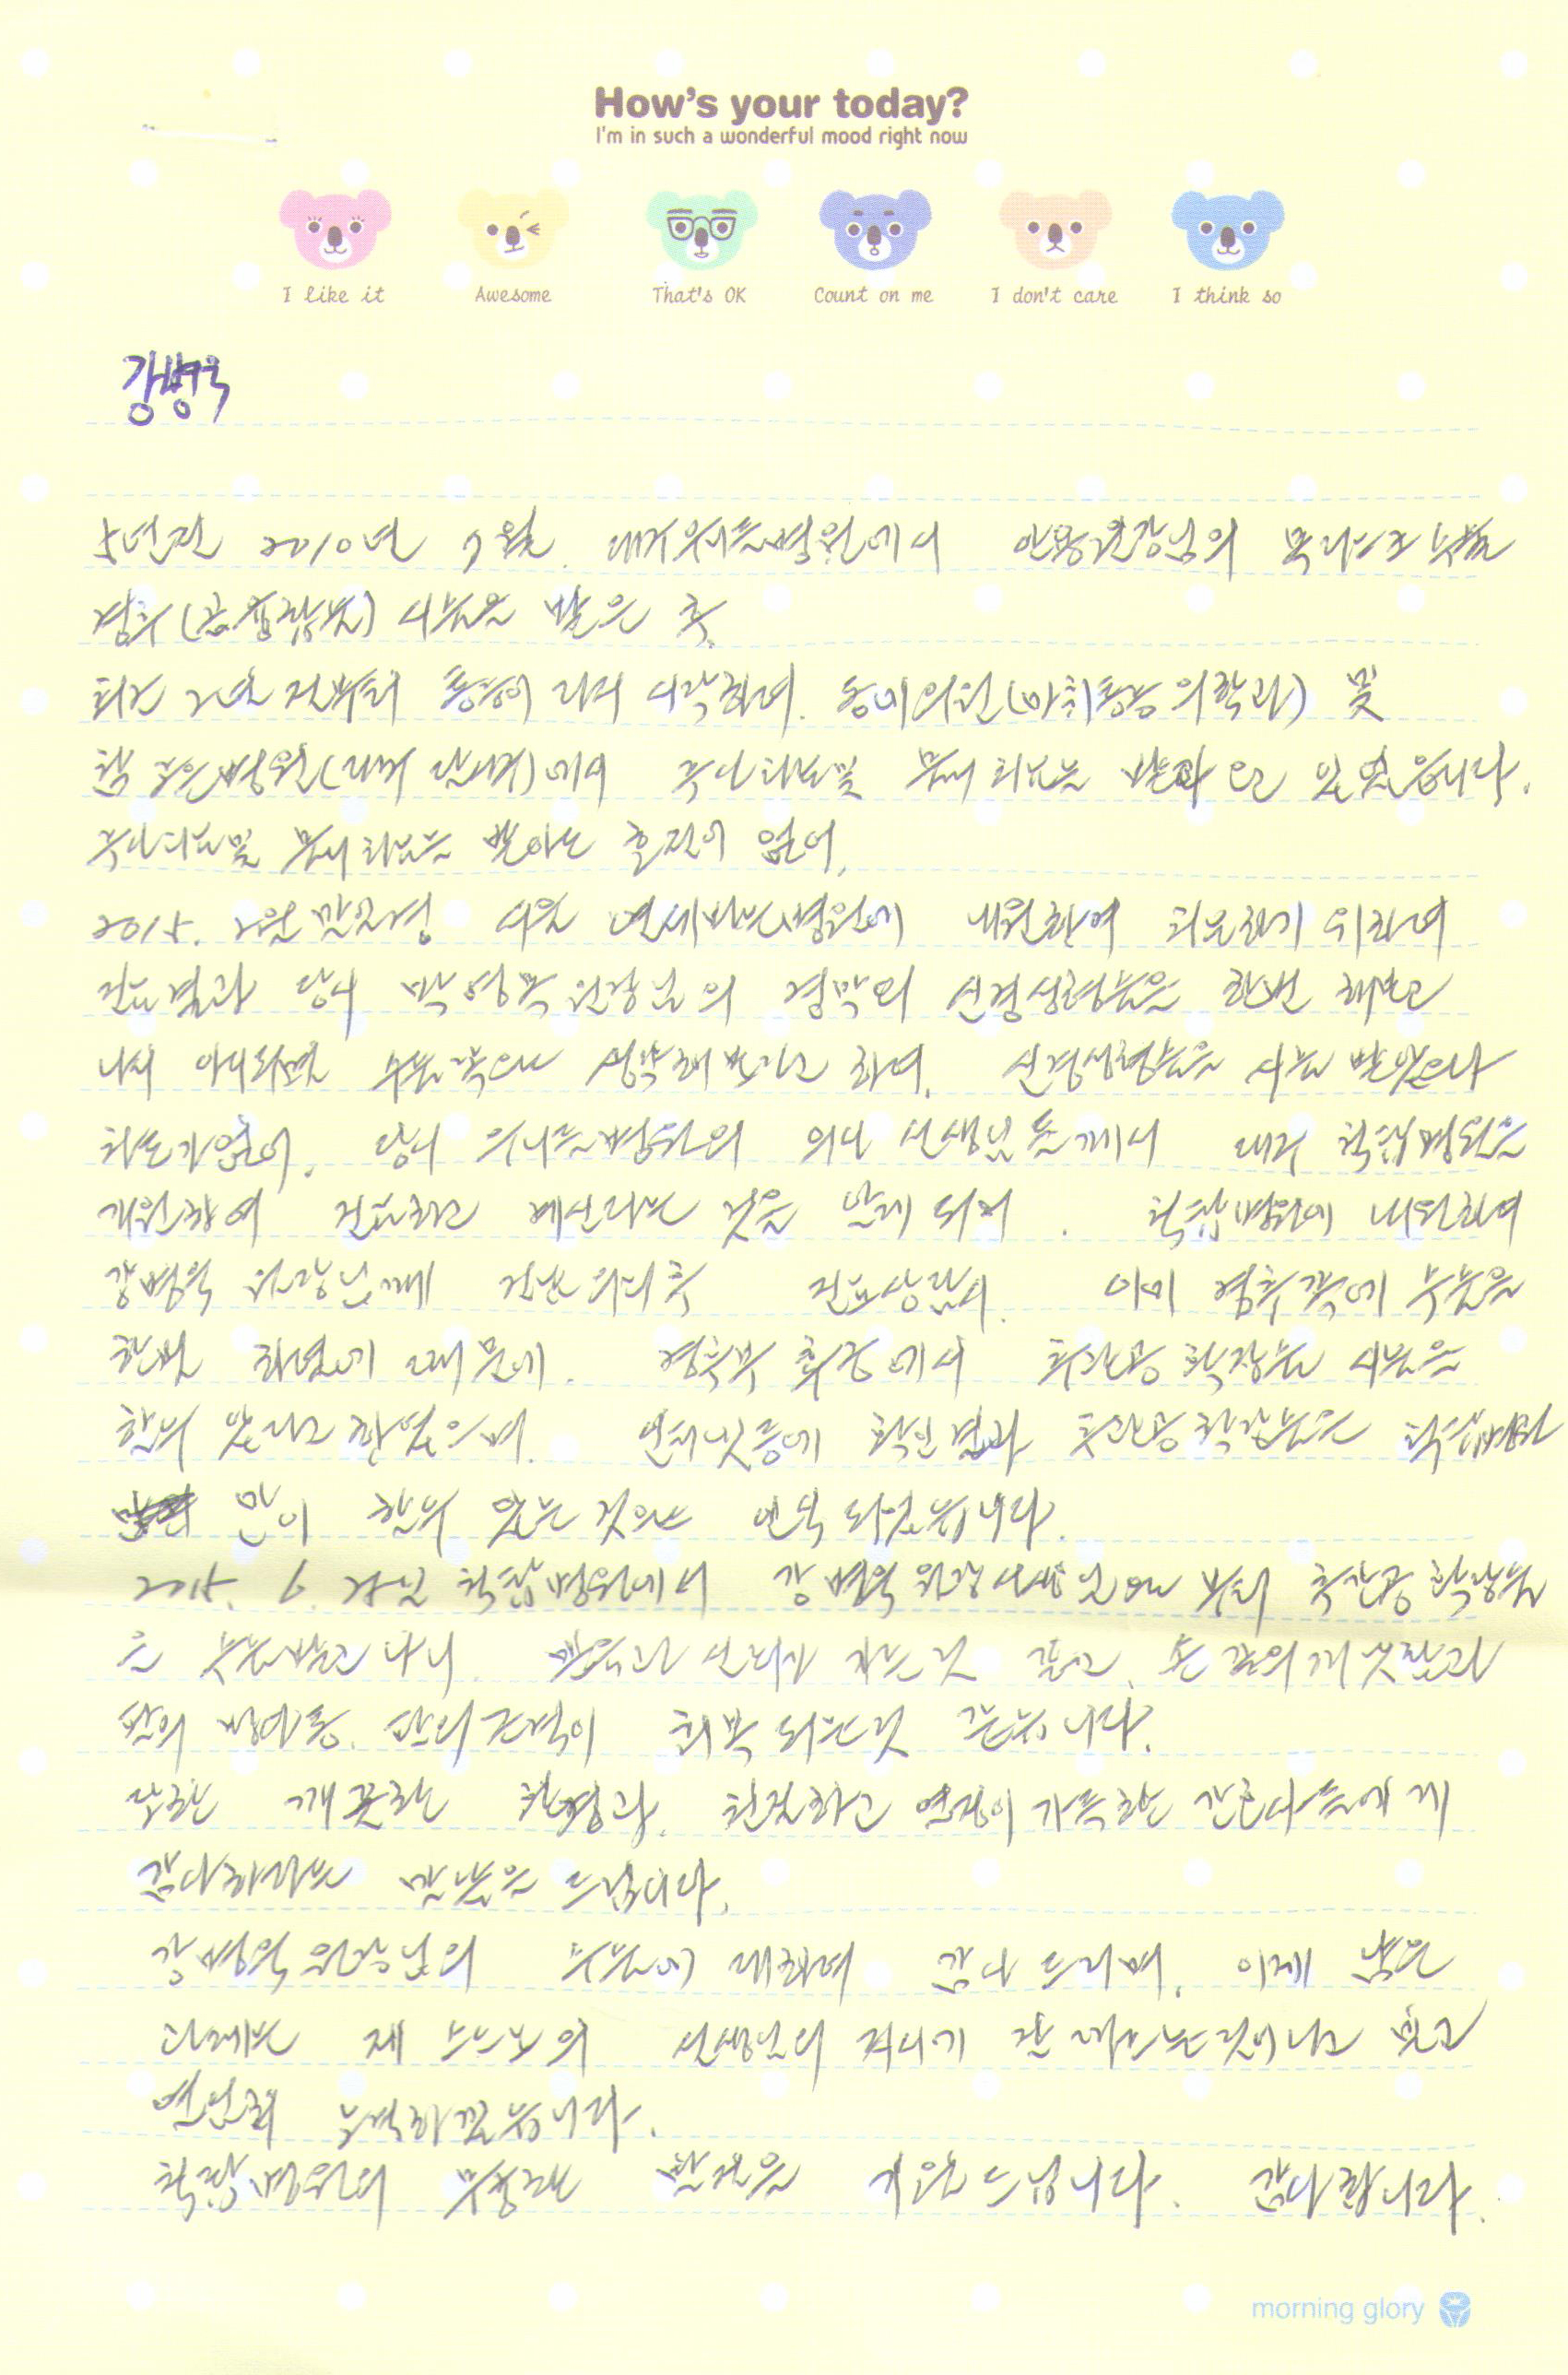 How's your today?
I'm in such a wonderful mood right now
I like it Awesome That's OK Count on me I don't care I think so
강병욱
5년전 2010년 7월. 대구 우리들병원에서 원장님의 목디스크 수술
경추 수술을 받은 후
최근 2년 전부터 통증이 다시 시작하여. 동미의원(마취통증의학과) 및
참 좋은병원(대구 달서구)에서 주사치료 및 물리치료를 받고 있었읍니다.
주사치료 및 물리치료를 받아도 호전이 없어,
2015. 2월 말일경 서울 연세바른병원에 내원하여 치료하기 위하여
진료결과 당시 박영목 원장님의 경막외 신경성형술을 한번 해보고
나서 아니되면 수술쪽으로 생각해 보자고 하여. 신경성형술을 시술 받았으나
차도가 없어. 당시 우리들병원의 의사 선생님들께서 대구 척탑병원을
개원하여 진료하고 계신다는 것을 알게 되어. 척탑병원에 내원하여
강병욱 원장님께 진료 의뢰후 진료상담시. 이미 경추쪽에 수술을
한번 하였기 때문에. 경추부 후궁에서 추간공 확장술 시술을
할수 있다고 하였으며. 인터넷등에 확인결과 추간공확장술은 척탑병원
만이 할수 있는 것으로 인식 되었읍니다.
2015. 6. 척탑병원에서 강병욱 원장선생님으로 부터 추간공확장술
을 수술받고 나니. 마음과 심리가 차는것 같고, 손 끝의 저릿함과
팔의 방아통. 팔의 근력이 회복 되는것 같습니다.
또한 깨끗한 환경과. 친절하고 열정이 가득한 간호사들에게
감사하다는 말씀을 드립니다.
강병욱 원장님의 수술에 대하여 감사 드리며. 이제 남은
과제는 제 스스로의 선생님의 지시가 잘 따르는것이라고 보고
열심히 노력하겠습니다.
척탑병원의 무궁한 발전을 기원 드립니다. 감사합니다.
morning glory